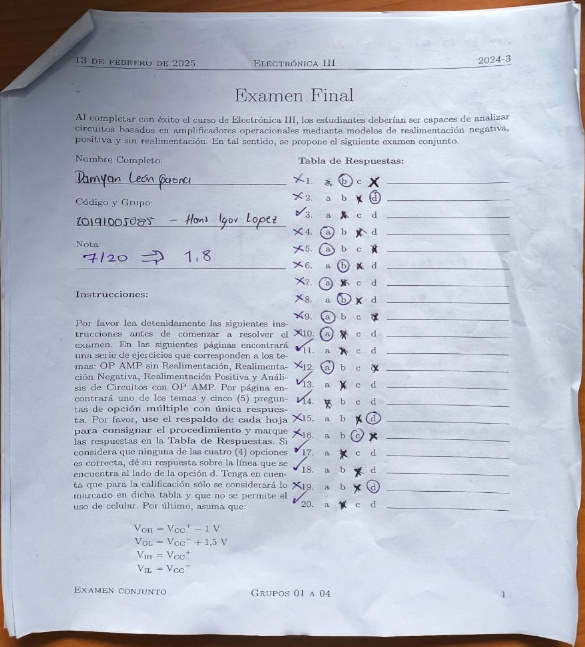 13 DE FEBRERO DE 2025 ELECTRÓNICA III 2024-3
Examen Final
Al completar con éxito el curso de Electrónica III, los estudiantes deberían ser capaces de analizar
circuitos basados en amplificadores operacionales mediante modelos de realimentación negativa,
positiva y sin realimentación. En tal sentido, se propone el siguiente examen conjunto.
Nombre Completo:
Damyan León
Código y Grupo:
20191005085 - Hans Igor Lopez
Nota:
7/20 ⇒ 1,8
Instrucciones:
Por favor lea detenidamente las siguientes ins-
trucciones antes de comenzar a resolver el
examen. En las siguientes páginas encontrará
una serie de ejercicios que corresponden a los te-
mas: OP AMP sin Realimentación, Realimenta-
ción Negativa, Realimentación Positiva y Análi-
sis de Circuitos con OP AMP. Por página en-
contrará uno de los temas y cinco (5) pregun-
tas de opción múltiple con única respues-
ta. Por favor, use el respaldo de cada hoja
para consignar el procedimiento y marque
las respuestas en la Tabla de Respuestas. Si
considera que ninguna de las cuatro (4) opciones
es correcta, dé su respuesta sobre la línea que se
encuentra al lado de la opción d. Tenga en cuen-
ta que para la calificación sólo se considerará lo
marcado en dicha tabla y que no se permite el
uso de celular. Por último, asuma que:
VOH = VCC+ − 1 V
VOL = VCC− + 1,5 V
VIH = VCC+
VIL = VCC−
Tabla de Respuestas:
✗1. a b c ✗
✗2. a b ✗ d
✓3. a ✗ c d
✗4. a b ✗ d
✗5. a b c ✗
✗6. a b ✗ d
✗7. a ✗ c d
✗8. a b ✗ d
✗9. a b c ✗
✗10. a ✗ c d
✓11. a ✗ c d
✗12. a b c ✗
✓13. a ✗ c d
✓14. ✗ b c d
✗15. a b ✗ d
✗16. a b c ✗
✓17. a ✗ c d
✓18. a b ✗ d
✗19. a b ✗ d
✓20. a ✗ c d
EXAMEN CONJUNTO GRUPOS 01 A 04 1